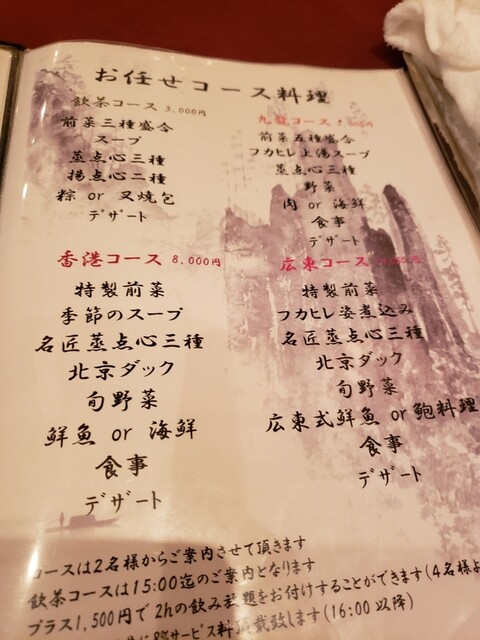 お任せコース料理
飲茶コース 3,000円
前菜三種盛合
スープ
蒸点心三種
揚点心二種
粽 or 叉焼包
デザート
九龍コース
前菜五種盛合
フカヒレ上湯スープ
蒸点心三種
野菜
肉 or 海鮮
食事
デザート
香港コース 8,000円
特製前菜
季節のスープ
名匠蒸点心三種
北京ダック
旬野菜
鮮魚 or 海鮮
食事
デザート
広東コース
特製前菜
フカヒレ姿煮込み
名匠蒸点心三種
北京ダック
旬野菜
広東式鮮魚 or 鮑料理
食事
デザート
コースは2名様からご案内させて頂きます
飲茶コースは15:00迄のご案内となります
プラス1,500円で2hの飲み放題をお付けすることができます(4名様よ
8%サービス料頂戴致します(16:00以降)